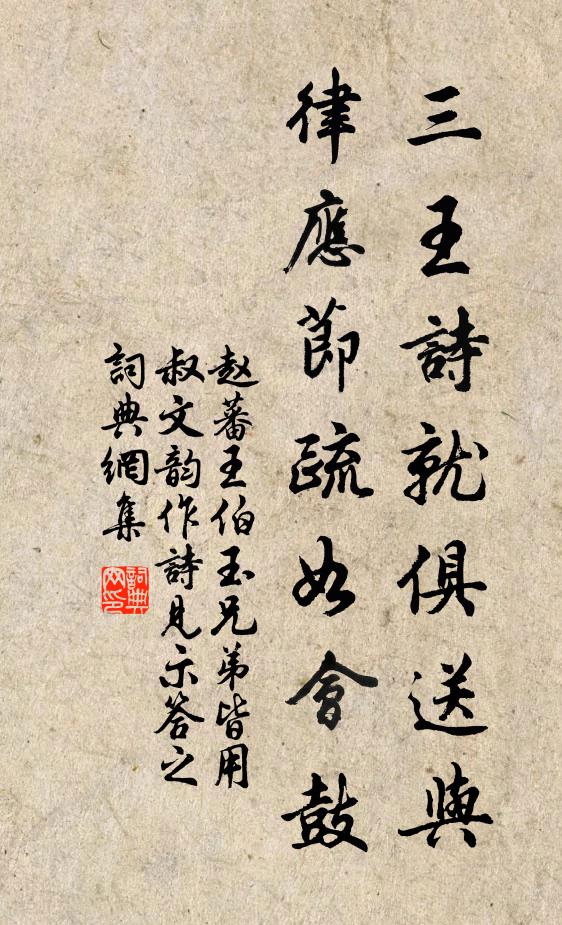 三王詩就俱送與
律應節疏如會鼓
赵蕃王伯玉兄弟皆用
叔文韵作詩見示答之
詞典網集
詞典网印